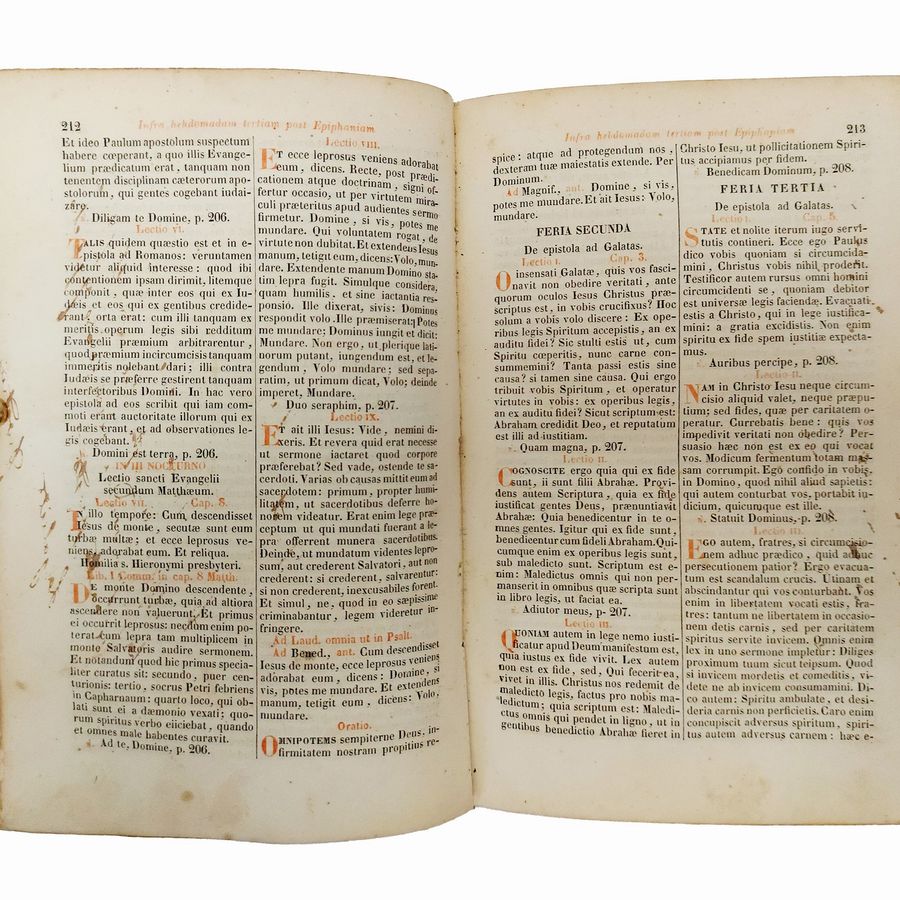 212
Infra hebdomadam tertiam post Epiphaniam
Et ideo Paulum apostolum suspectum
habere cœperant, a quo illis Evange-
lium prædicatum erat, tanquam non
tenentem disciplinam cæterorum apo-
stolorum, qui gentes cogebant iudai-
záre.
Diligam te Domine, p. 206.
Lectio VI.
TALIS quidem quæstio est et in e-
pistola ad Romanos: verumtamen
videtur aliquid interesse: quod ibi
contentionem ipsam dirimit, litemque
componit, quæ inter eos qui ex Iu-
dæis et eos qui ex gentibus credide-
rant, orta erat: cum illi tanquam ex
meritis operum legis sibi redditum
Evangelii præmium arbitrarentur,
quod præmium incircumcisis tanquam
immeritis nolebant dari; illi contra
Iudæis se præferre gestirent tanquam
interfectoribus Domini. In hac vero
epistola ad eos scribit qui iam com-
moti erant auctoritate illorum qui ex
Iudæis erant, et ad observationes le-
gis cogebant.
Domini est terra, p. 206.
IN III NOCTURNO
Lectio sancti Evangelii
secundum Matthæum.
Lectio VII. Cap. 8.
IN illo tempore: Cum descendisset
Iesus de monte, secutæ sunt eum
turbæ multæ; et ecce leprosus ve-
niens, adorabat eum. Et reliqua.
Homilia s. Hieronymi presbyteri.
Lib. 1 Comm. in cap. 8 Matth.
DE monte Domino descendente,
occurrunt turbæ, quia ad altiora
ascendere non valuerunt. Et primus
ei occurrit leprosus: necdum enim po-
terat cum lepra tam multiplicem in
monte Salvatoris audire sermonem.
Et notandum quod hic primus specia-
liter curatus sit: secundo, puer cen-
turionis: tertio, socrus Petri febriens
in Capharnaum: quarto loco, qui ob-
lati sunt ei a dæmonio vexati; quo-
rum spiritus verbo eiiciebat, quando
et omnes male habentes curavit.
Ad te, Domine, p. 206.
Lectio VIII.
ET ecce leprosus veniens adorabat
eum, dicens. Recte, post prædi-
cationem atque doctrinam, signi of-
fertur occasio, ut per virtutem mira-
culi præteritus apud audientes sermo
firmetur. Domine, si vis, potes me
mundare. Qui voluntatem rogat, de
virtute non dubitat. Et extendens Iesus
manum, tetigit eum, dicens: Volo, mun-
dare. Extendente manum Domino sta-
tim lepra fugit. Simulque considera,
quam humilis. et sine iactantia res-
ponsio. Ille dixerat, sivis: Dominus
respondit volo. Ille præmiserat, Potes
me mundare; Dominus iungit et dicit:
Mundare. Non ergo, ut plerique lati-
norum putant, iungendum est, et le-
gendum, Volo mundare; sed sepa-
ratim, ut primum dicat, Volo; deinde
imperet, Mundare.
Duo seraphim, p. 207.
Lectio IX.
ET ait illi Iesus: Vide, nemini di-
xeris. Et revera quid erat necesse
ut sermone iactaret quod corpore
præferebat? Sed vade, ostende te sa-
cerdoti. Varias ob causas mittit eum ad
sacerdotem: primum, propter humi-
litatem, ut sacerdotibus deferre ho-
norem videatur. Erat enim lege præ-
ceptum ut qui mundati fuerant a le-
pra offerrent munera sacerdotibus.
Deinde, ut mundatum videntes lepro-
sum, aut crederent Salvatori, aut non
crederent: si crederent, salvarentur:
si non crederent, inexcusabiles forent.
Et simul, ne, quod in eo sæpissime
criminabantur, legem videretur in-
fringere.
Ad Laud. omnia ut in Psalt.
Ad Bened., ant. Cum descendisset
Iesus de monte, ecce leprosus veniens
adorabat eum, dicens: Domine, si
vis, potes me mundare. Et extendens
manum, tetigit eum, dicens: Volo,
mundare.
Oratio.
OMNIPOTEMS sempiterne Deus, in-
firmitatem nostram propitius re-
Infra hebdomadam tertiam post Epiphaniam
213
spice: atque ad protegendum nos,
dexteram tuæ maiestatis extende. Per
Dominum.
Ad Magnif., ant. Domine, si vis,
potes me mundare. Et ait Iesus: Volo,
mundare.
FERIA SECUNDA
De epistola ad Galatas.
Lectio I. Cap. 3.
O insensati Galatæ, quis vos fasci-
navit non obedire veritati, ante
quorum oculos Iesus Christus præ-
scriptus est, in vobis crucifixus? Hoc
solum a vobis volo discere: Ex ope-
ribus legis Spiritum accepistis, an ex
auditu fidei? Sic stulti estis ut, cum
Spiritu cœperitis, nunc carne con-
summemini? Tanta passi estis sine
causa? si tamen sine causa. Qui ergo
tribuit vobis Spiritum, et operatur
virtutes in vobis: ex operibus legis,
an ex auditu fidei? Sicut scriptum est:
Abraham credidit Deo, et reputatum
est illi ad iustitiam.
Quam magna, p. 207.
Lectio II.
COGNOSCITE ergo quia qui ex fide
sunt, ii sunt filii Abrahæ. Provi-
dens autem Scriptura, quia ex fide
iustificat gentes Deus, prænuntiavit
Abrahæ: Quia benedicentur in te o-
mnes gentes. Igitur qui ex fide sunt,
benedicentur cum fideli Abraham. Qui-
cumque enim ex operibus legis sunt,
sub maledicto sunt. Scriptum est e-
nim: Maledictus omnis qui non per-
manserit in omnibus quæ scripta sunt
in libro legis, ut faciat ea.
Adiutor meus, p. 207.
Lectio III.
QUONIAM autem in lege nemo iusti-
ficatur apud Deum manifestum est,
quia iustus ex fide vivit. Lex autem
non est ex fide, sed, Qui fecerit ea,
vivet in illis. Christus nos redemit de
maledicto legis, factus pro nobis ma-
ledictum; quia scriptum est: Maledi-
ctus omnis qui pendet in ligno, ut in
gentibus benedictio Abrahæ fieret in
Christo Iesu, ut pollicitationem Spiri-
tus accipiamus per fidem.
Benedicam Dominum, p. 208.
FERIA TERTIA
De epistola ad Galatas.
Lectio I. Cap. 5.
STATE et nolite iterum iugo servi-
tutis contineri. Ecce ego Paulus
dico vobis quoniam si circumcida-
mini, Christus vobis nihil proderit.
Testificor autem rursus omni homini
circumcidenti se, quoniam debitor
est universæ legis faciendæ. Evacuati
estis a Christo, qui in lege iustifica-
mini: a gratia excidistis. Nos enim
spiritu ex fide spem iustitiæ expecta-
mus.
Auribus percipe, p. 208.
Lectio II.
NAM in Christo Iesu neque circum-
cisio aliquid valet, neque præpu-
tium; sed fides, quæ per caritatem o-
peratur. Currebatis bene: quis vos
impedivit veritati non obedire? Per-
suasio hæc non est ex eo qui vocat
vos. Modicum fermentum totam mas-
sam corrumpit. Ego confido in vobis,
in Domino, quod nihil aliud sapietis:
qui autem conturbat vos, portabit iu-
dicium, quicumque est ille.
Statuit Dominus, p. 208.
Lectio III.
EGO autem, fratres, si circumcisio-
nem adhuc prædico, quid adhuc
persecutionem patior? Ergo evacua-
tum est scandalum crucis. Utinam et
abscindantur qui vos conturbant. Vos
enim in libertatem vocati estis, fra-
tres: tantum ne libertatem in occasio-
nem detis carnis, sed per caritatem
spiritus servite invicem. Omnis enim
lex in uno sermone impletur: Diliges
proximum tuum sicut teipsum. Quod
si invicem mordetis et comeditis, vi-
dete ne ab invicem consumamini. Di-
co autem: Spiritu ambulate, et desi-
deria carnis non perficietis. Caro enim
concupiscit adversus spiritum, spiri-
tus autem adversus carnem: hæc e-